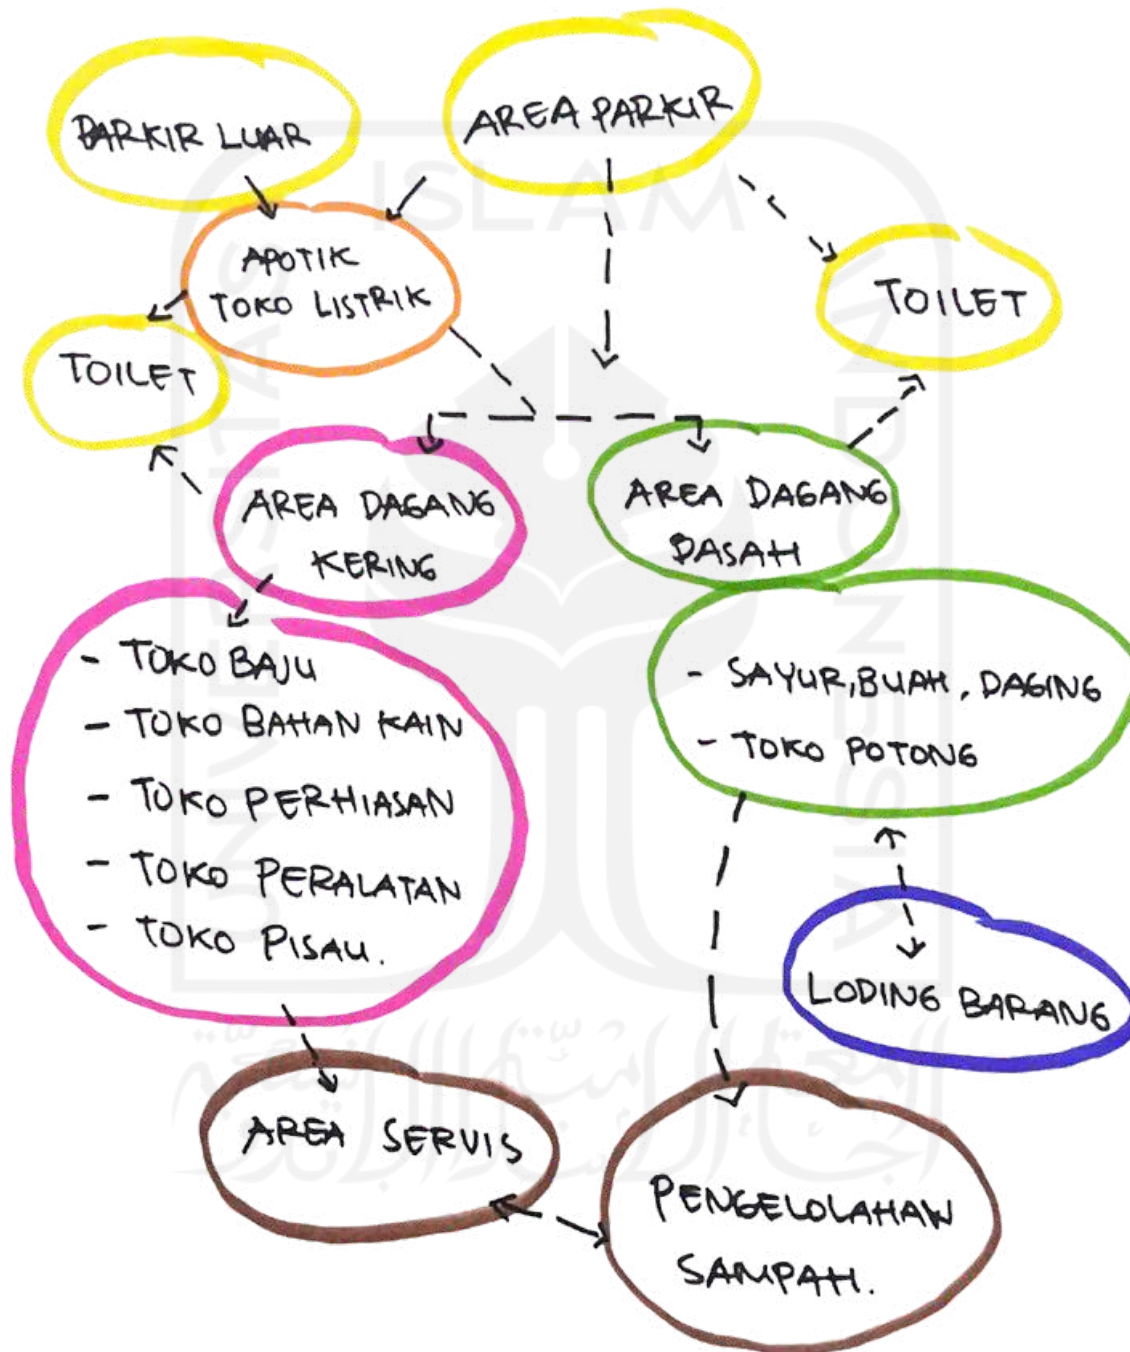 PARKIR LUAR
AREA PARKIR
APOTIK
TOKO LISTRIK
TOILET
TOILET
AREA DAGANG
KERING
AREA DAGANG
BASAH
- TOKO BAJU
- TOKO BAHAN KAIN
- TOKO PERHIASAN
- TOKO PERALATAN
- TOKO PISAU.
- SAYUR, BUAH, DAGING
- TOKO POTONG
LODING BARANG
AREA SERVIS
PENGELOLAHAN
SAMPAH.
UNIVERSITAS
ISLAM
INDONESIA